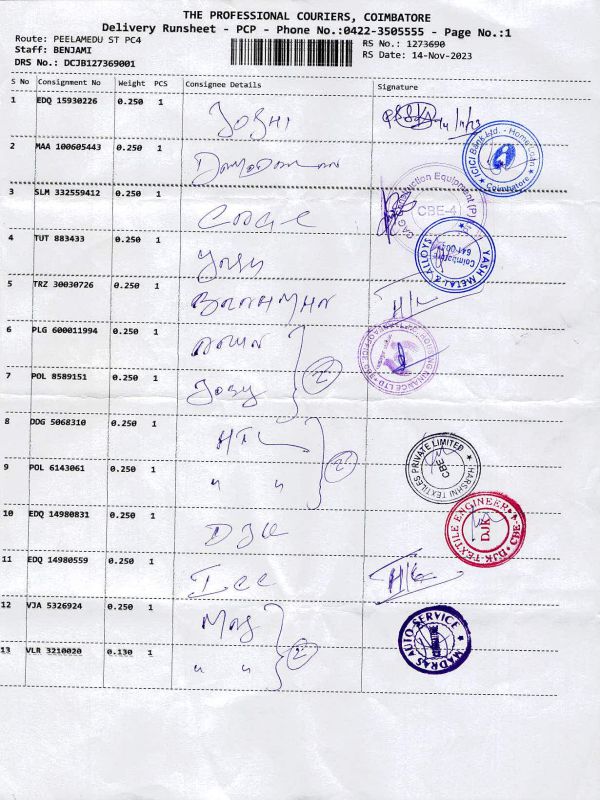 THE PROFESSIONAL COURIERS, COIMBATORE
Delivery Runsheet - PCP - Phone No.:0422-3505555 - Page No.:1
Route: PEELAMEDU ST PC4
RS No.: 1273690
Staff: BENJAMI
RS Date: 14-Nov-2023
DRS No.: DCJB127369001
S No Consignment No Weight PCS Consignee Details Signature
1 EDQ 15930226 0.250 1 JOSHI 14/11/23
ICICI Bank Ltd. - Home Loan
Coimbatore
2 MAA 100605443 0.250 1
3 SLM 332559412 0.250 1
CAG Construction Equipment (P)
CBE-4
4 TUT 883433 0.250 1
YASH METAL & ALLOYS
Coimbatore
5 TRZ 30030726 0.250 1 H/L
6 PLG 600011994 0.250 1 ARUN
7 POL 8589151 0.250 1 2
8 DDG 5068310 0.250 1 HTL
HARSHNI TEXTILES PRIVATE LIMITED
CBE
9 POL 6143061 0.250 1 " " 2
10 EDQ 14980831 0.250 1 DJK
DJK-TEXTILE ENGINEER
DJK
CBE-4
11 EDQ 14980559 0.250 1 ICC
12 VJA 5326924 0.250 1 MAS
MADRAS AUTO SERVICE
13 VLR 3210020 0.130 1 " " 2